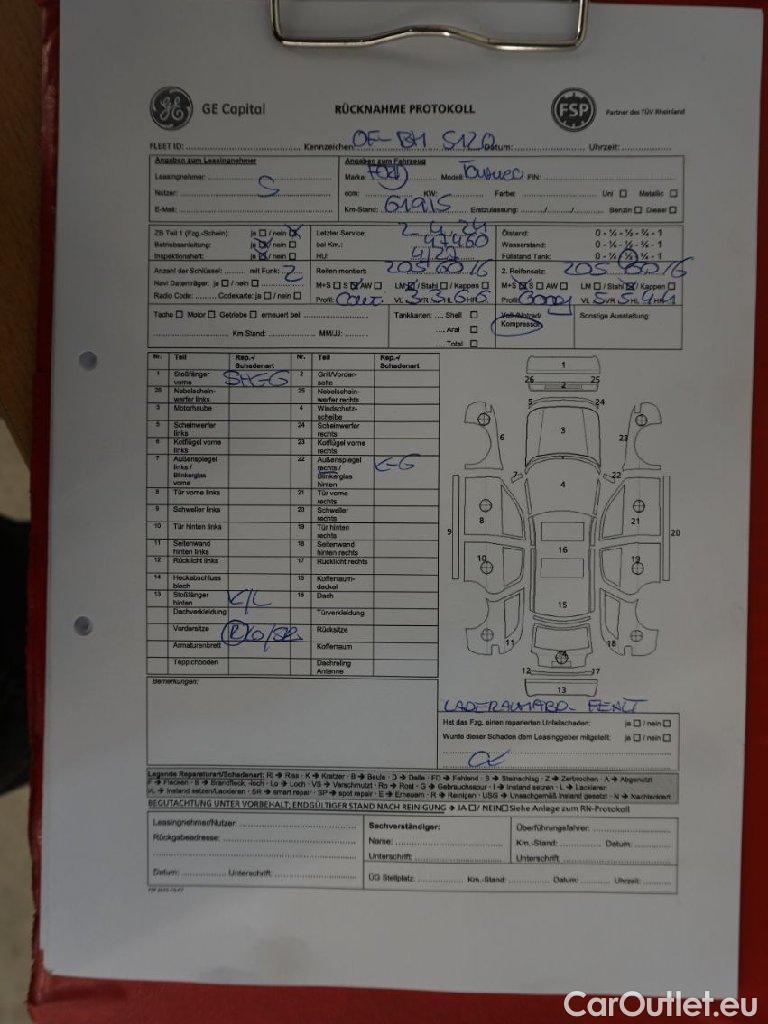 GE Capital RÜCKNAHME PROTOKOLL FSP Partner des TÜV Rheinland
FLEET ID: Kennzeichen OF-BH 5120 Datum: Uhrzeit:
Angaben zum Leasingnehmer Angaben zum Fahrzeug
Leasingnehmer: Marke FORD Modell FIN:
Nutzer: ccm: KW: Farbe: Uni ☐ Metallic ☐
E-Mail: Km-Stand: 61915 Erstzulassung: Benzin ☐ Diesel ☐
ZB Teil 1 (Fzg.-Schein): ja ☐ / nein ☒ Letzter Service 2.4.21 Ölstand: 0 - ¼ - ½ - ¾ - 1
Betriebsanleitung: ja ☒ / nein ☐ bei Km.: 47460 Wasserstand: 0 - ¼ - ½ - ¾ - 1
Inspektionsheft: ja ☒ / nein ☐ HU: 4/22 Füllstand Tank: 0 - ¼ - ½ - ¾ - 1
Anzahl der Schlüssel: mit Funk: 2 Reifen montiert: 205 60 16 2. Reifensatz: 205 60 16
Navi Datenträger: ja ☐ / nein ☐ M+S ☐ S ☒ AW ☐ LM ☒ / Stahl ☐ / Kappen ☐ M+S ☒ S ☐ AW ☐ LM ☐ / Stahl ☒ / Kappen ☐
Radio Code: Codekarte: ja ☐ / nein ☐ Profil: Cont. VL VR HL HR Profil: VL VR HL HR
Tacho ☐ Motor ☐ Getriebe ☐ erneuert bei Tankkarten: Shell ☐ Voll/Notrad/ Sonstige Ausstattung:
Aral ☐ Kompressor
Km Stand: MM/JJ: Total ☐
Nr. Teil Rep.-/Schadenart Nr. Teil Rep.-/Schadenart
1 Stoßfänger vorne SHGG 2 Grill/Vorderseite
26 Nebelscheinwerfer links 25 Nebelscheinwerfer rechts
3 Motorhaube 4 Windschutzscheibe
5 Scheinwerfer links 24 Scheinwerfer rechts
6 Kotflügel vorne links 23 Kotflügel vorne rechts
7 Außenspiegel links / Blinkerglas vorne 22 Außenspiegel rechts / Blinkerglas hinten
8 Tür vorne links 21 Tür vorne rechts
9 Schweller links 20 Schweller rechts
10 Tür hinten links 19 Tür hinten rechts
11 Seitenwand hinten links 18 Seitenwand hinten rechts
12 Rücklicht links 17 Rücklicht rechts
14 Heckabschlussblech 15 Kofferraumdeckel
13 Stoßfänger hinten K/L 16 Dach
Dachverkleidung Türverkleidung
Vordersitze Rücksitze
Armaturenbrett Kofferraum
Teppichboden Dachreling Antenne
1
26 2 25
5 24
3
6 23
7 22
4
8 21
9 20
16
10 19
15
11 18
12 17
13
Bemerkungen:
FEHLT
Hat das Fzg. einen reparierten Unfallschaden: ja ☐ / nein ☐
Wurde dieser Schaden dem Leasinggeber mitgeteilt: ja ☐ / nein ☐
Legende Reparaturart/Schadenart: RI → Riss - K → Kratzer - B → Beule - D → Delle - FD → Fehlend - S → Steinschlag - Z → Zerbrochen - A → Abgenutzt
F → Flecken - B → Brandfleck, -loch - Lo → Loch - VS → Verschmutzt - Ro → Rost - G → Gebrauchsspur - I → Instand setzen - L → Lackieren
I/L → Instand setzen/Lackieren - SR → smart repair - SP → spot repair - E → Erneuern - R → Reinigen - USG → Unsachgemäß instand gesetzt - N → Nachlackiert
BEGUTACHTUNG UNTER VORBEHALT; ENDGÜLTIGER STAND NACH REINIGUNG → JA ☐ / NEIN ☐ Siehe Anlage zum RN-Protokoll
Leasingnehmer/Nutzer: Sachverständiger: Überführungsfahrer:
Rückgabeadresse: Name: Km.-Stand: Datum:
Unterschrift: Unterschrift
Datum: Unterschrift: ÜG Stellplatz: Km.-Stand: Datum: Uhrzeit:
CarOutlet.eu